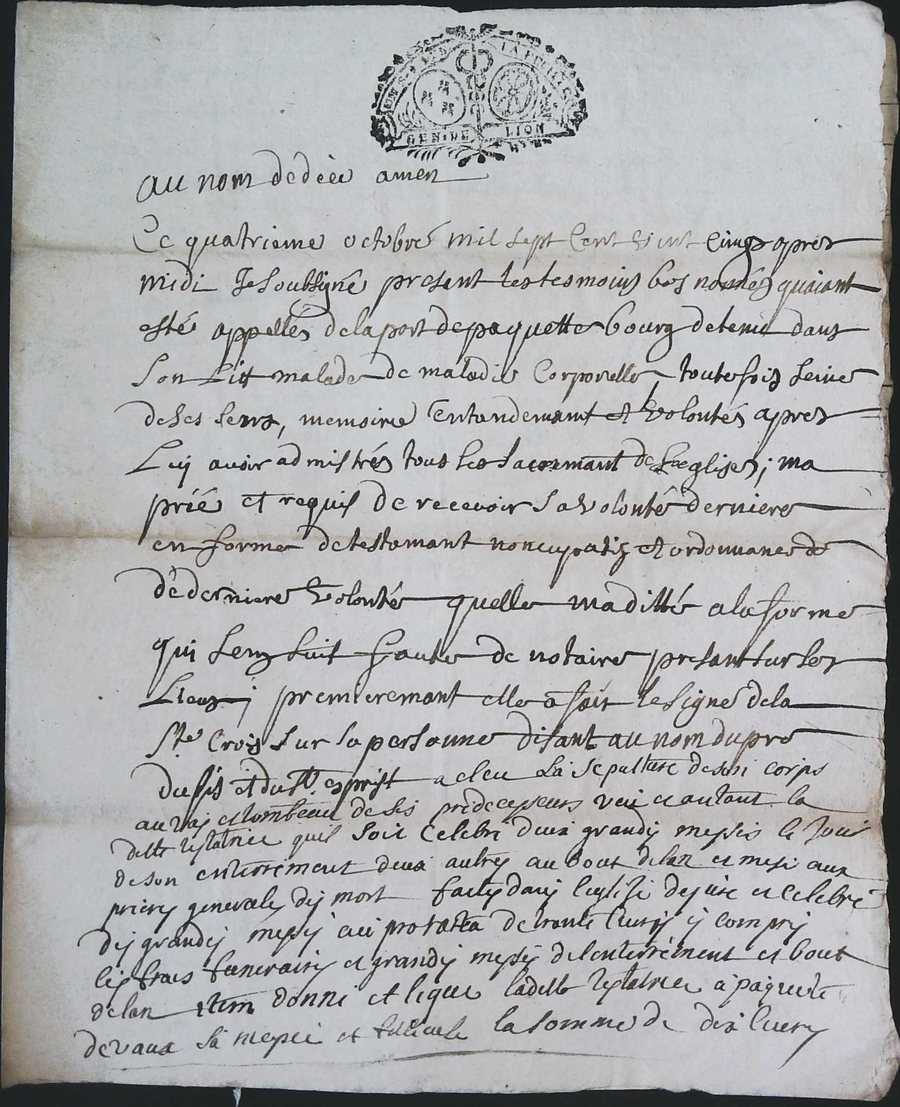 LA FEUILLE
GEN. DE LION
au nom de diéu amen
Ce quatrieme octobre mil sept Cent vint Cinq apres
midi Je soussigné présent les tesmoins bas nommés quaiant
esté appellés de la part de paquette bourg detenue dans
son Litt malade de maladie Corporelle, toutefois seine
de ses sens, memoire entandemant et volontés apres
Luy avoir admistrés tous les sacremant de Leglise; ma
prié et requis de recevoir sa volonté derniere
en forme de testamant noncupatif et ordonnance de
de derniere volonté quelle ma ditté a la forme
qui sensuit faute de notaire présant sur les
Lieux; premieremant elle a fait le signe de la
Ste Croix sur sa personne disant au nom du pre
du fis et du St esprist a eleu la sepulture de son corps
au vas et tombeau de ses predecesseurs veu et autant la
ditte testatrice quil soit celebré deux grandes messes le jour
de son enterrement deux autres au bout de lan et mese aux
prieres generales des mort faites dans leglise de et celebré
des grandes messes au de trante livres y compris
les frais funeraires et grandes messes de lenterrement et bout
de lan item donne et legue laditte testatrice à paquette
devaux sa niepce et filleule la somme de dix livres